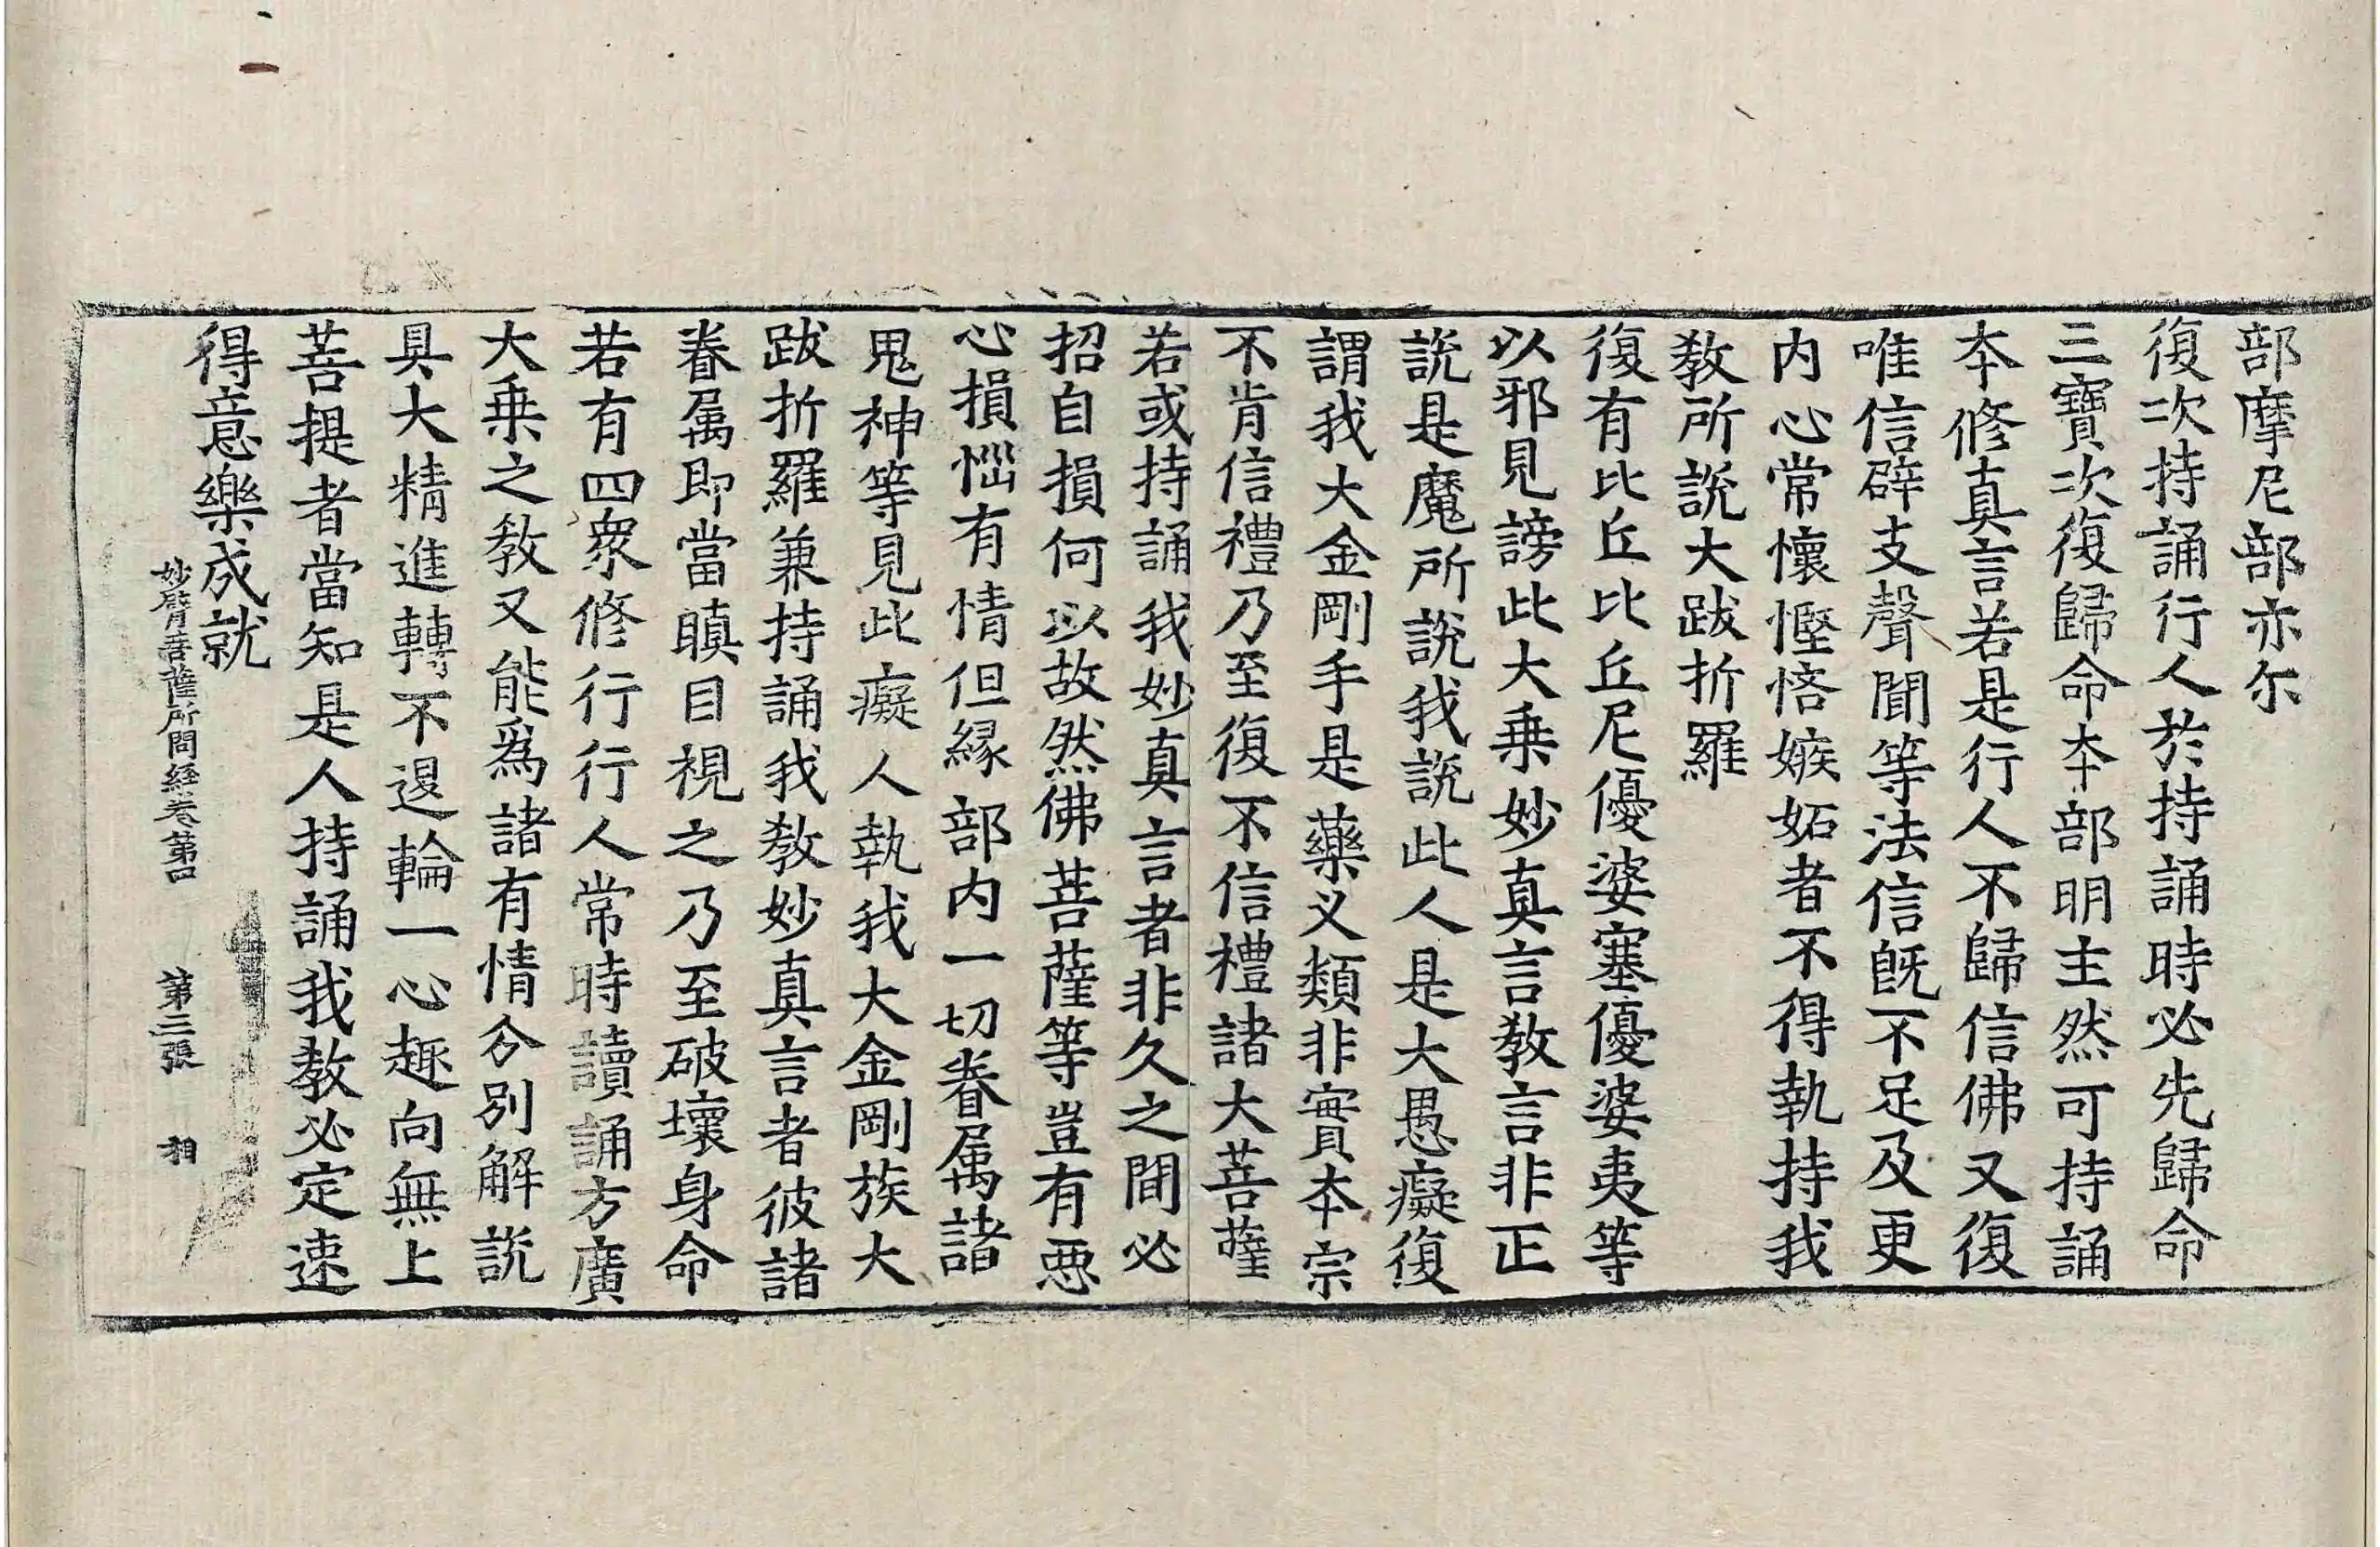 部摩尼部亦尒
復次持誦行人於持誦時必先歸命
三寶次復歸命夲部明主然可持誦
夲修真言若是行人不歸信佛又復
唯信辟支聲聞等法信既不足及更
内心常懷慳悋嫉妬者不得執持我
教所説大跋折羅
復有比丘比丘尼優婆塞優婆夷等
以邪見謗此大乗妙真言教言非正
説是魔所説我説此人是大愚癡復
謂我大金剛手是藥义類非實夲宗
不肯信禮乃至復不信禮諸大菩薩
若或持誦我妙真言者非久之間必
招自損何以故然佛菩薩等豈有惡
心損惱有情但縁部内一切眷属諸
鬼神等見此癡人執我大金剛族大
跋折羅兼持誦我教妙真言者彼諸
眷属即當瞋目視之乃至破壞身命
若有四衆修行行人常時讀誦方廣
大乗之教又能爲諸有情分別解説
具大精進轉不退輪一心趣向無上
菩提者當知是人持誦我教必定速
得意樂成就
妙臂菩薩所問経卷第四 第三張 相